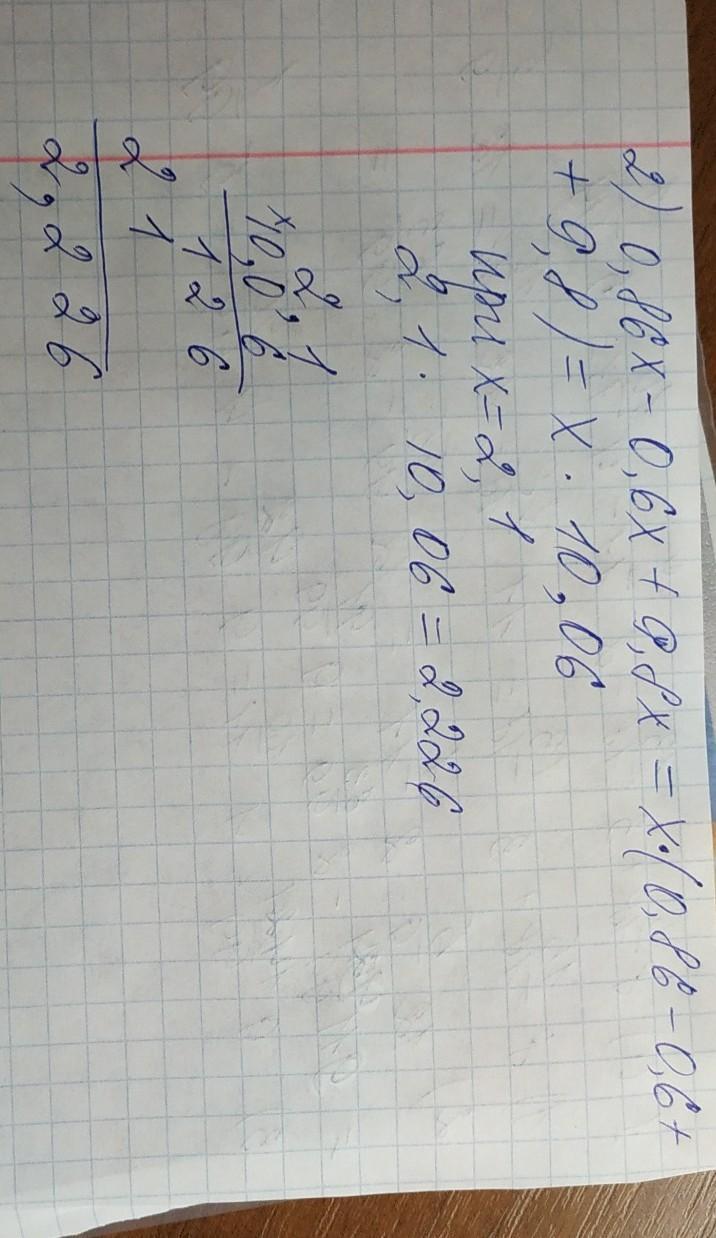 2) 0,86x - 0,6x + 9,8x = x·(0,86 - 0,6 +
+ 9,8) = x · 10,06
при x = 2,1
2,1 · 10,06 = 2,226
2,1
×10,06
126
21
2,226